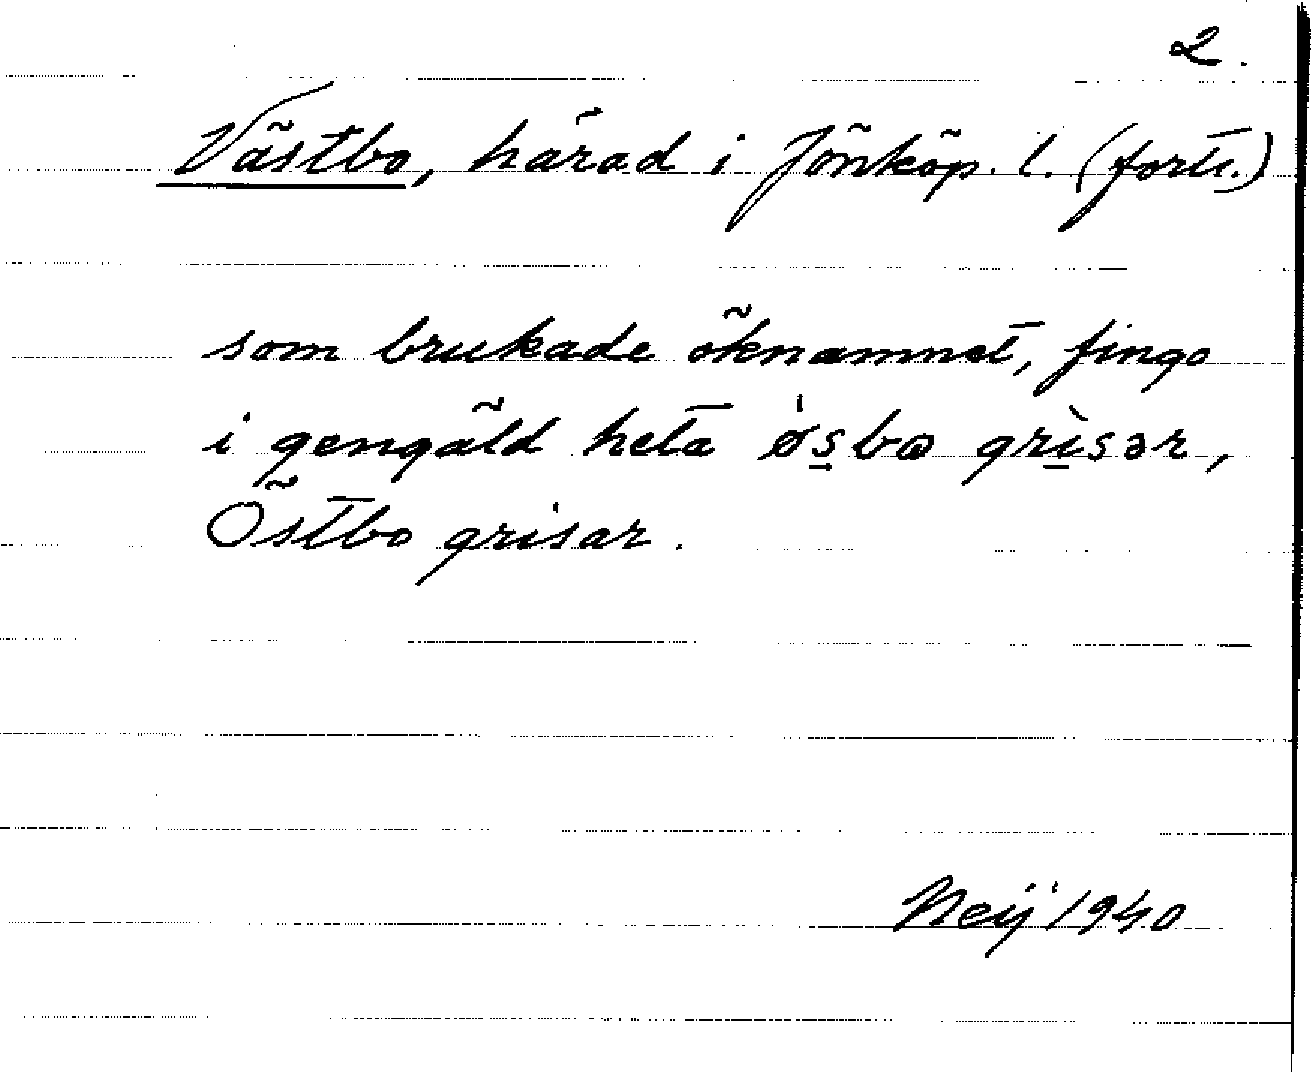 2.
Västbo, härad i Jönköp. l. (forts.)
som brukade öknamnet, fingo
i gengäld heta ø̀s̲bɷ grı̲̀sər,
Östbo grisar.
Neij 1940